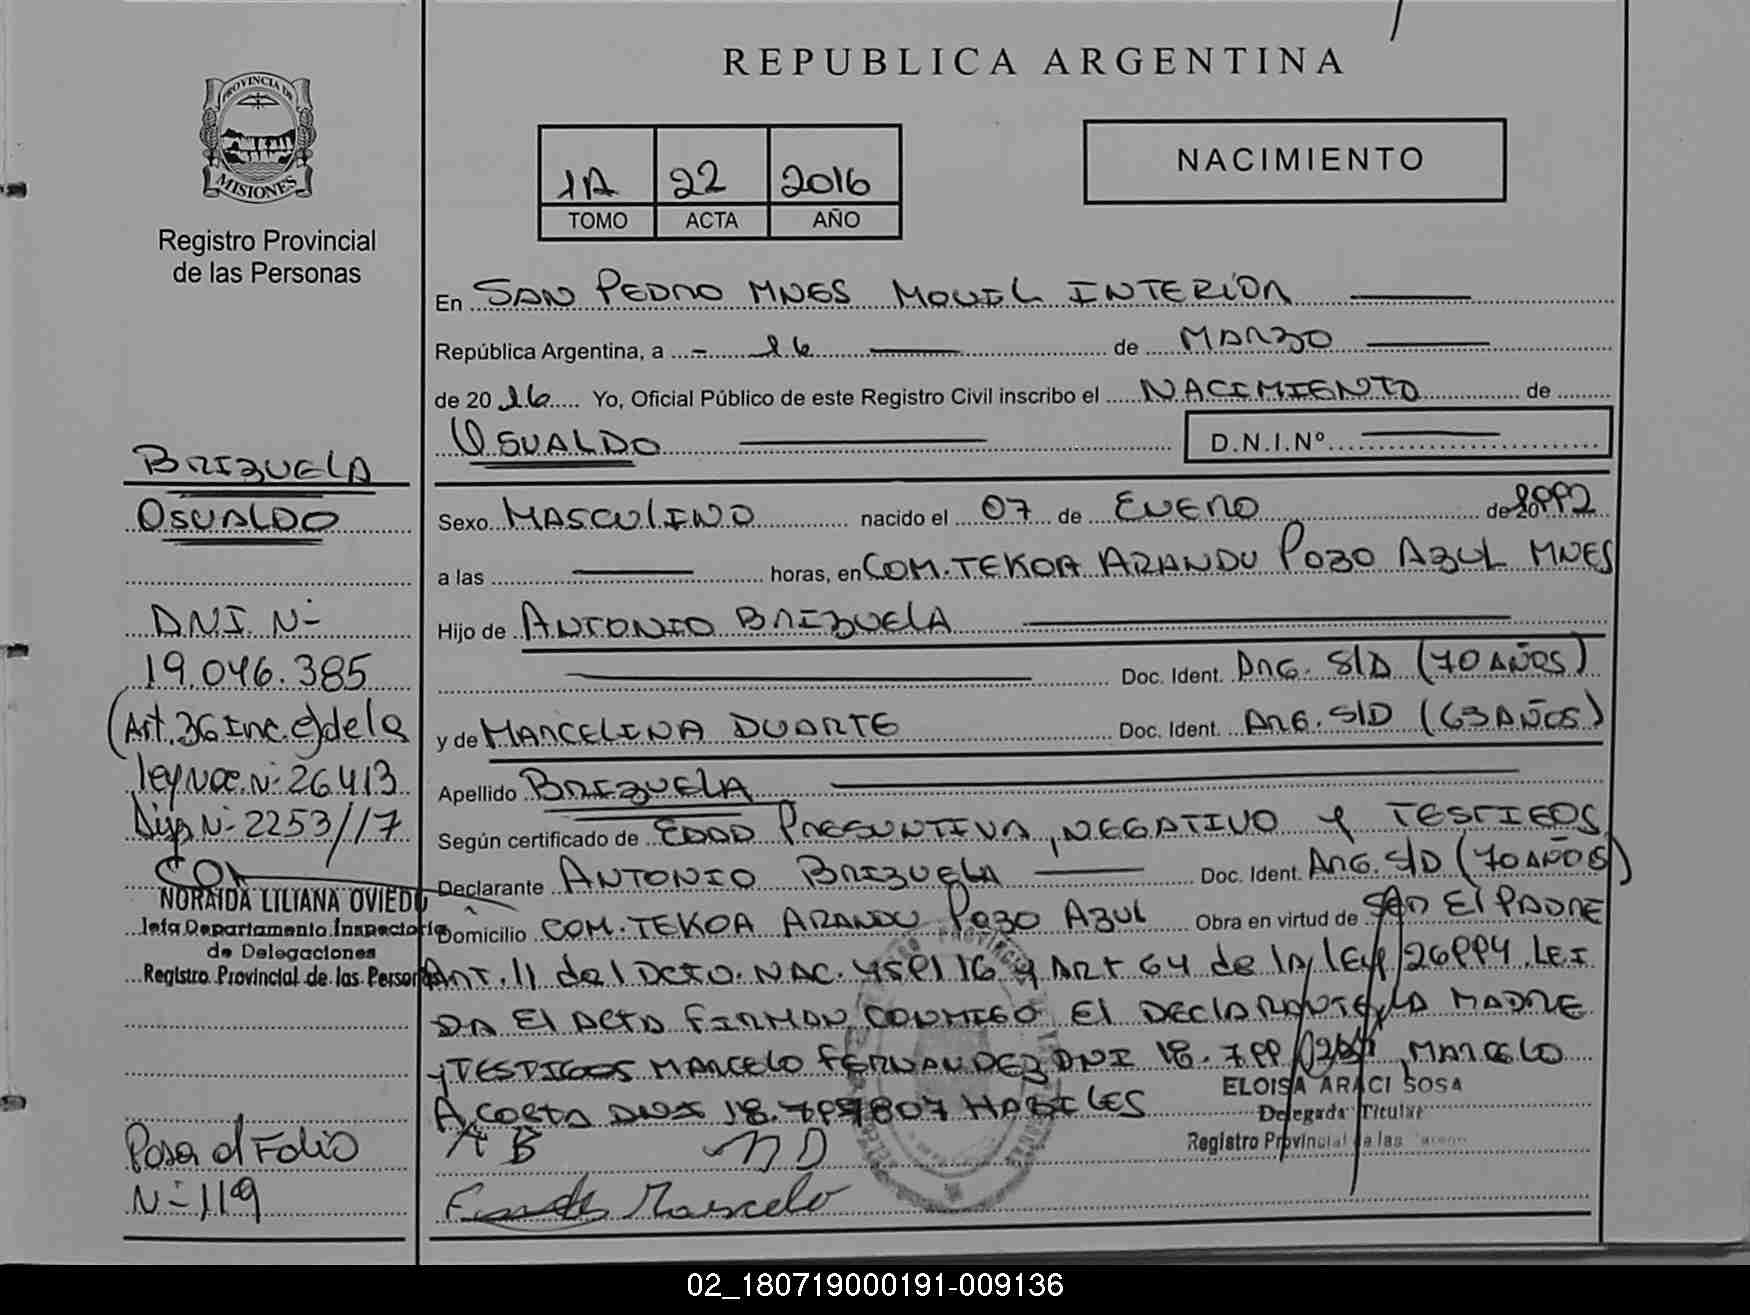 REPUBLICA ARGENTINA
PROVINCIA DE
MISIONES
Registro Provincial
de las Personas
1A 22 2016
TOMO ACTA AÑO
NACIMIENTO
En SAN PEDRO MNES MOVIL INTERIOR
República Argentina, a - 16 de MARZO
de 20 16 Yo, Oficial Público de este Registro Civil inscribo el NACIMIENTO de
OSVALDO D.N.I.Nº
BRIZUELA
OSVALDO
DNI N-
19.046.385
(Art. 36 Inc. e) de la
ley nac. N- 26413
Disp N- 2253/17
NORAIDA LILIANA OVIEDO
Jefa Departamento Inspectoría
de Delegaciones
Registro Provincial de las Personas
Pasa al Folio
N- 119
Sexo MASCULINO nacido el 07 de ENERO de 1992
a las horas, en COM. TEKOA ARANDU POZO AZUL MNES
Hijo de ANTONIO BRIZUELA
Doc. Ident. ARG. S/D (70 AÑOS)
y de MARCELINA DUARTE Doc. Ident. ARG. S/D (63 AÑOS)
Apellido BRIZUELA
Según certificado de EDAD PRESUNTIVA, NEGATIVO Y TESTIGOS
Declarante ANTONIO BRIZUELA Doc. Ident. ARG. S/D (70 AÑOS)
Domicilio COM. TEKOA ARANDU POZO AZUL Obra en virtud de SER El PADRE
ART. 11 del DCTO. NAC. 459/16 y ART 64 de la ley 26994. LEI
DA El ACTA FIRMAN CONMIGO El DECLARANTE, LA MADRE
y TESTIGOS MARCELO FERNANDEZ DNI 18.799 MARCELO
ACOSTA DNI 18.799807 HABILES
ELOISA ARACI SOSA
Delegada Titular
Registro Provincial de las Personas
A B M D
Marcelo
02_180719000191-009136